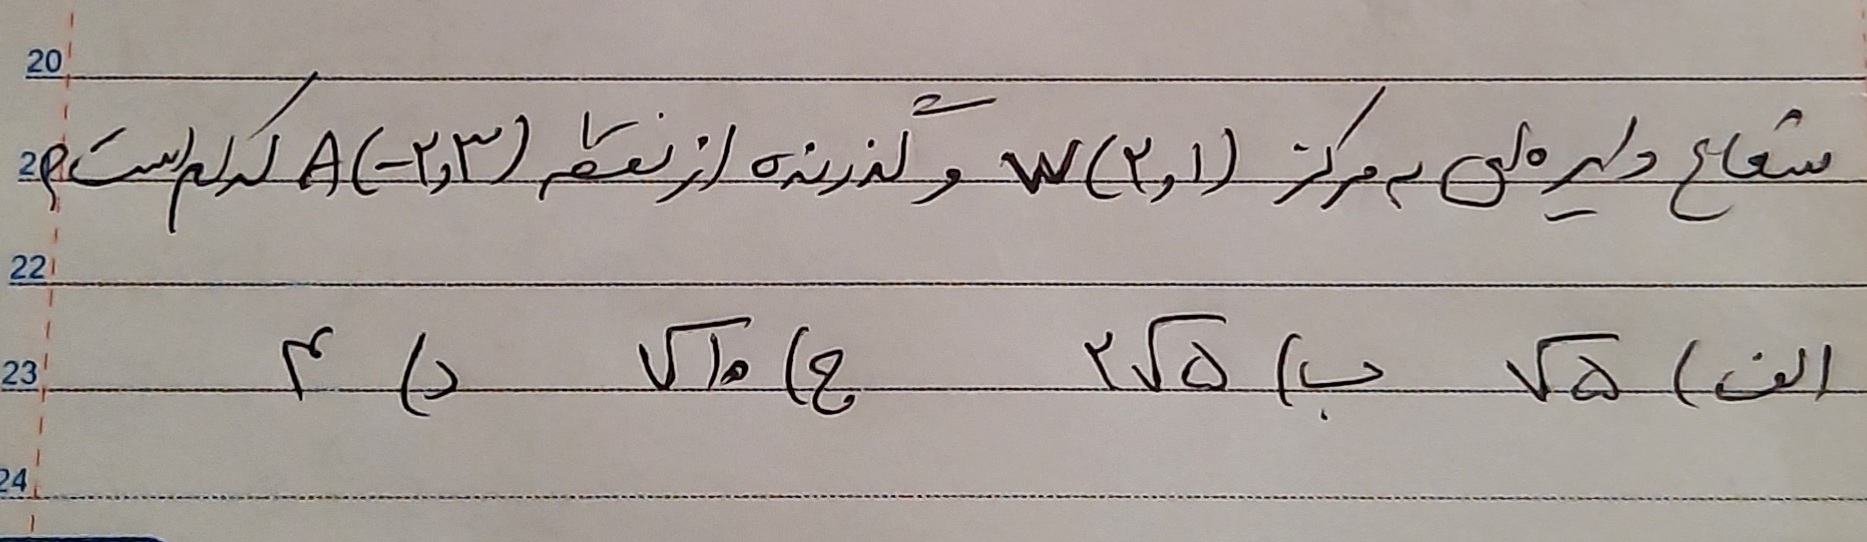 20
21 شعاع دایره‌ای به مرکز W(۲,۱) و گذرنده از نقطهٔ A(-۲,۳) کدام است؟
22
23 الف) √۵ ب) ۲√۵ ج) √۱۰ د) ۴
24